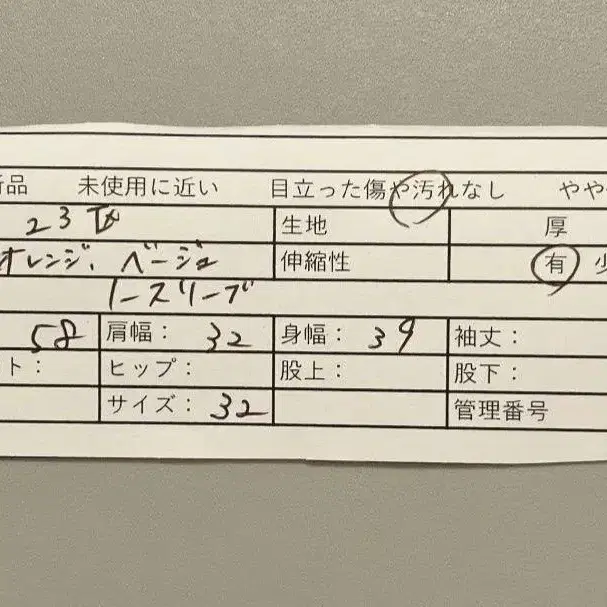 新品 未使用に近い 目立った傷や汚れなし やや
23区 生地 厚
オレンジ、ベージュ 伸縮性 有 少
ノースリーブ
58 肩幅： 32 身幅： 39 袖丈：
ト： ヒップ： 股上： 股下：
サイズ： 32 管理番号